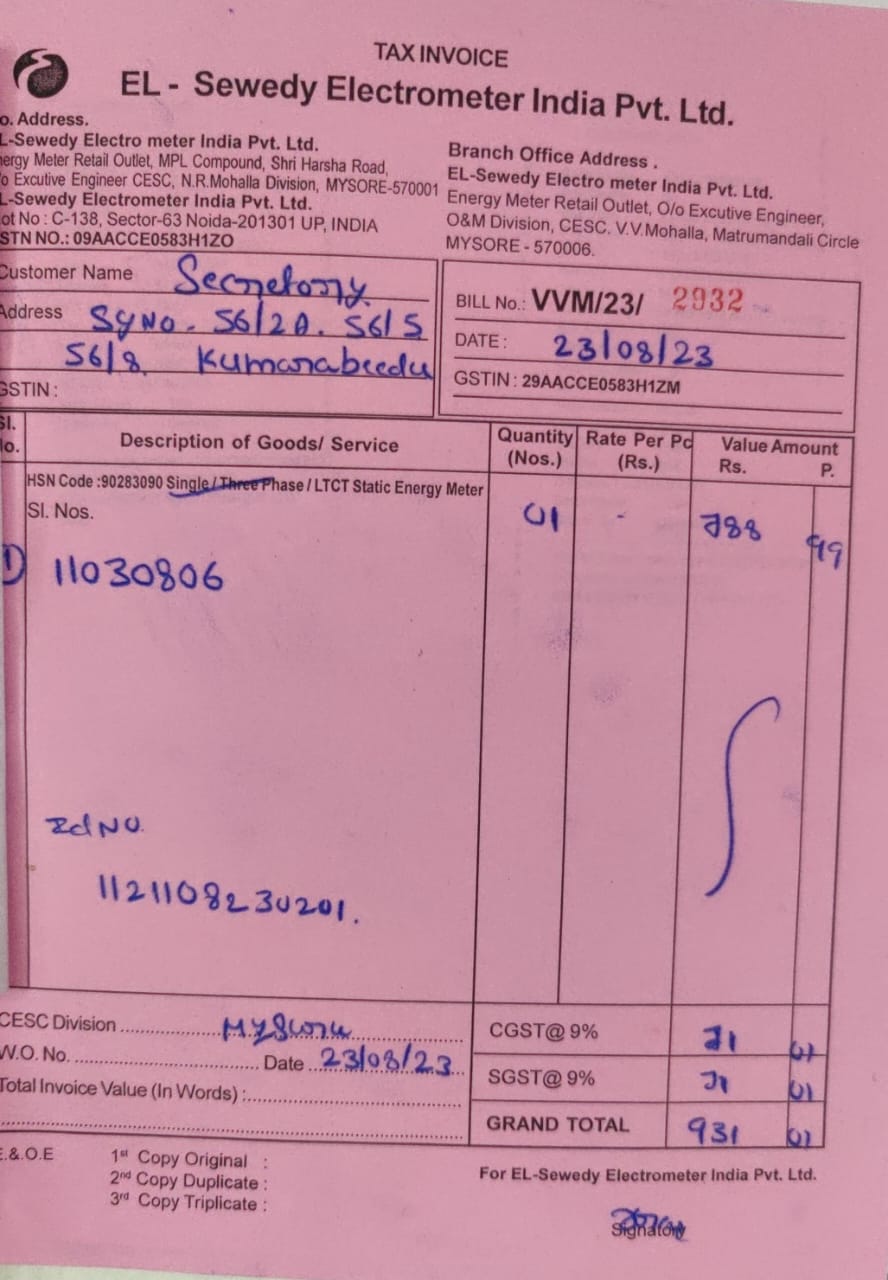 TAX INVOICE
EL - Sewedy Electrometer India Pvt. Ltd.
o. Address.
L-Sewedy Electro meter India Pvt. Ltd.
nergy Meter Retail Outlet, MPL Compound, Shri Harsha Road,
o Excutive Engineer CESC, N.R.Mohalla Division, MYSORE-570001
L-Sewedy Electrometer India Pvt. Ltd.
ot No : C-138, Sector-63 Noida-201301 UP, INDIA
STN NO.: 09AACCE0583H1ZO
Branch Office Address .
EL-Sewedy Electro meter India Pvt. Ltd.
Energy Meter Retail Outlet, O/o Excutive Engineer,
O&M Division, CESC. V.V.Mohalla, Matrumandali Circle
MYSORE - 570006.
Customer Name Secretory
Address SyNo. 56/2A. 56/5
56/8 Kumarabeedu
GSTIN :
BILL No.: VVM/23/ 2932
DATE : 23/08/23
GSTIN : 29AACCE0583H1ZM
Sl. No. Description of Goods/ Service Quantity (Nos.) Rate Per Pc (Rs.) Value Amount Rs. P.
HSN Code :90283090 Single / Three Phase / LTCT Static Energy Meter
Sl. Nos. 01 - 788 99
1) 11030806
IdNO.
1121108230201.
CESC Division Mysore CGST@ 9% 71 01
W.O. No. Date 23/08/23 SGST@ 9% 71 01
Total Invoice Value (In Words) :
GRAND TOTAL 931 01
E.&.O.E 1st Copy Original :
2nd Copy Duplicate :
3rd Copy Triplicate :
For EL-Sewedy Electrometer India Pvt. Ltd.
Signatory